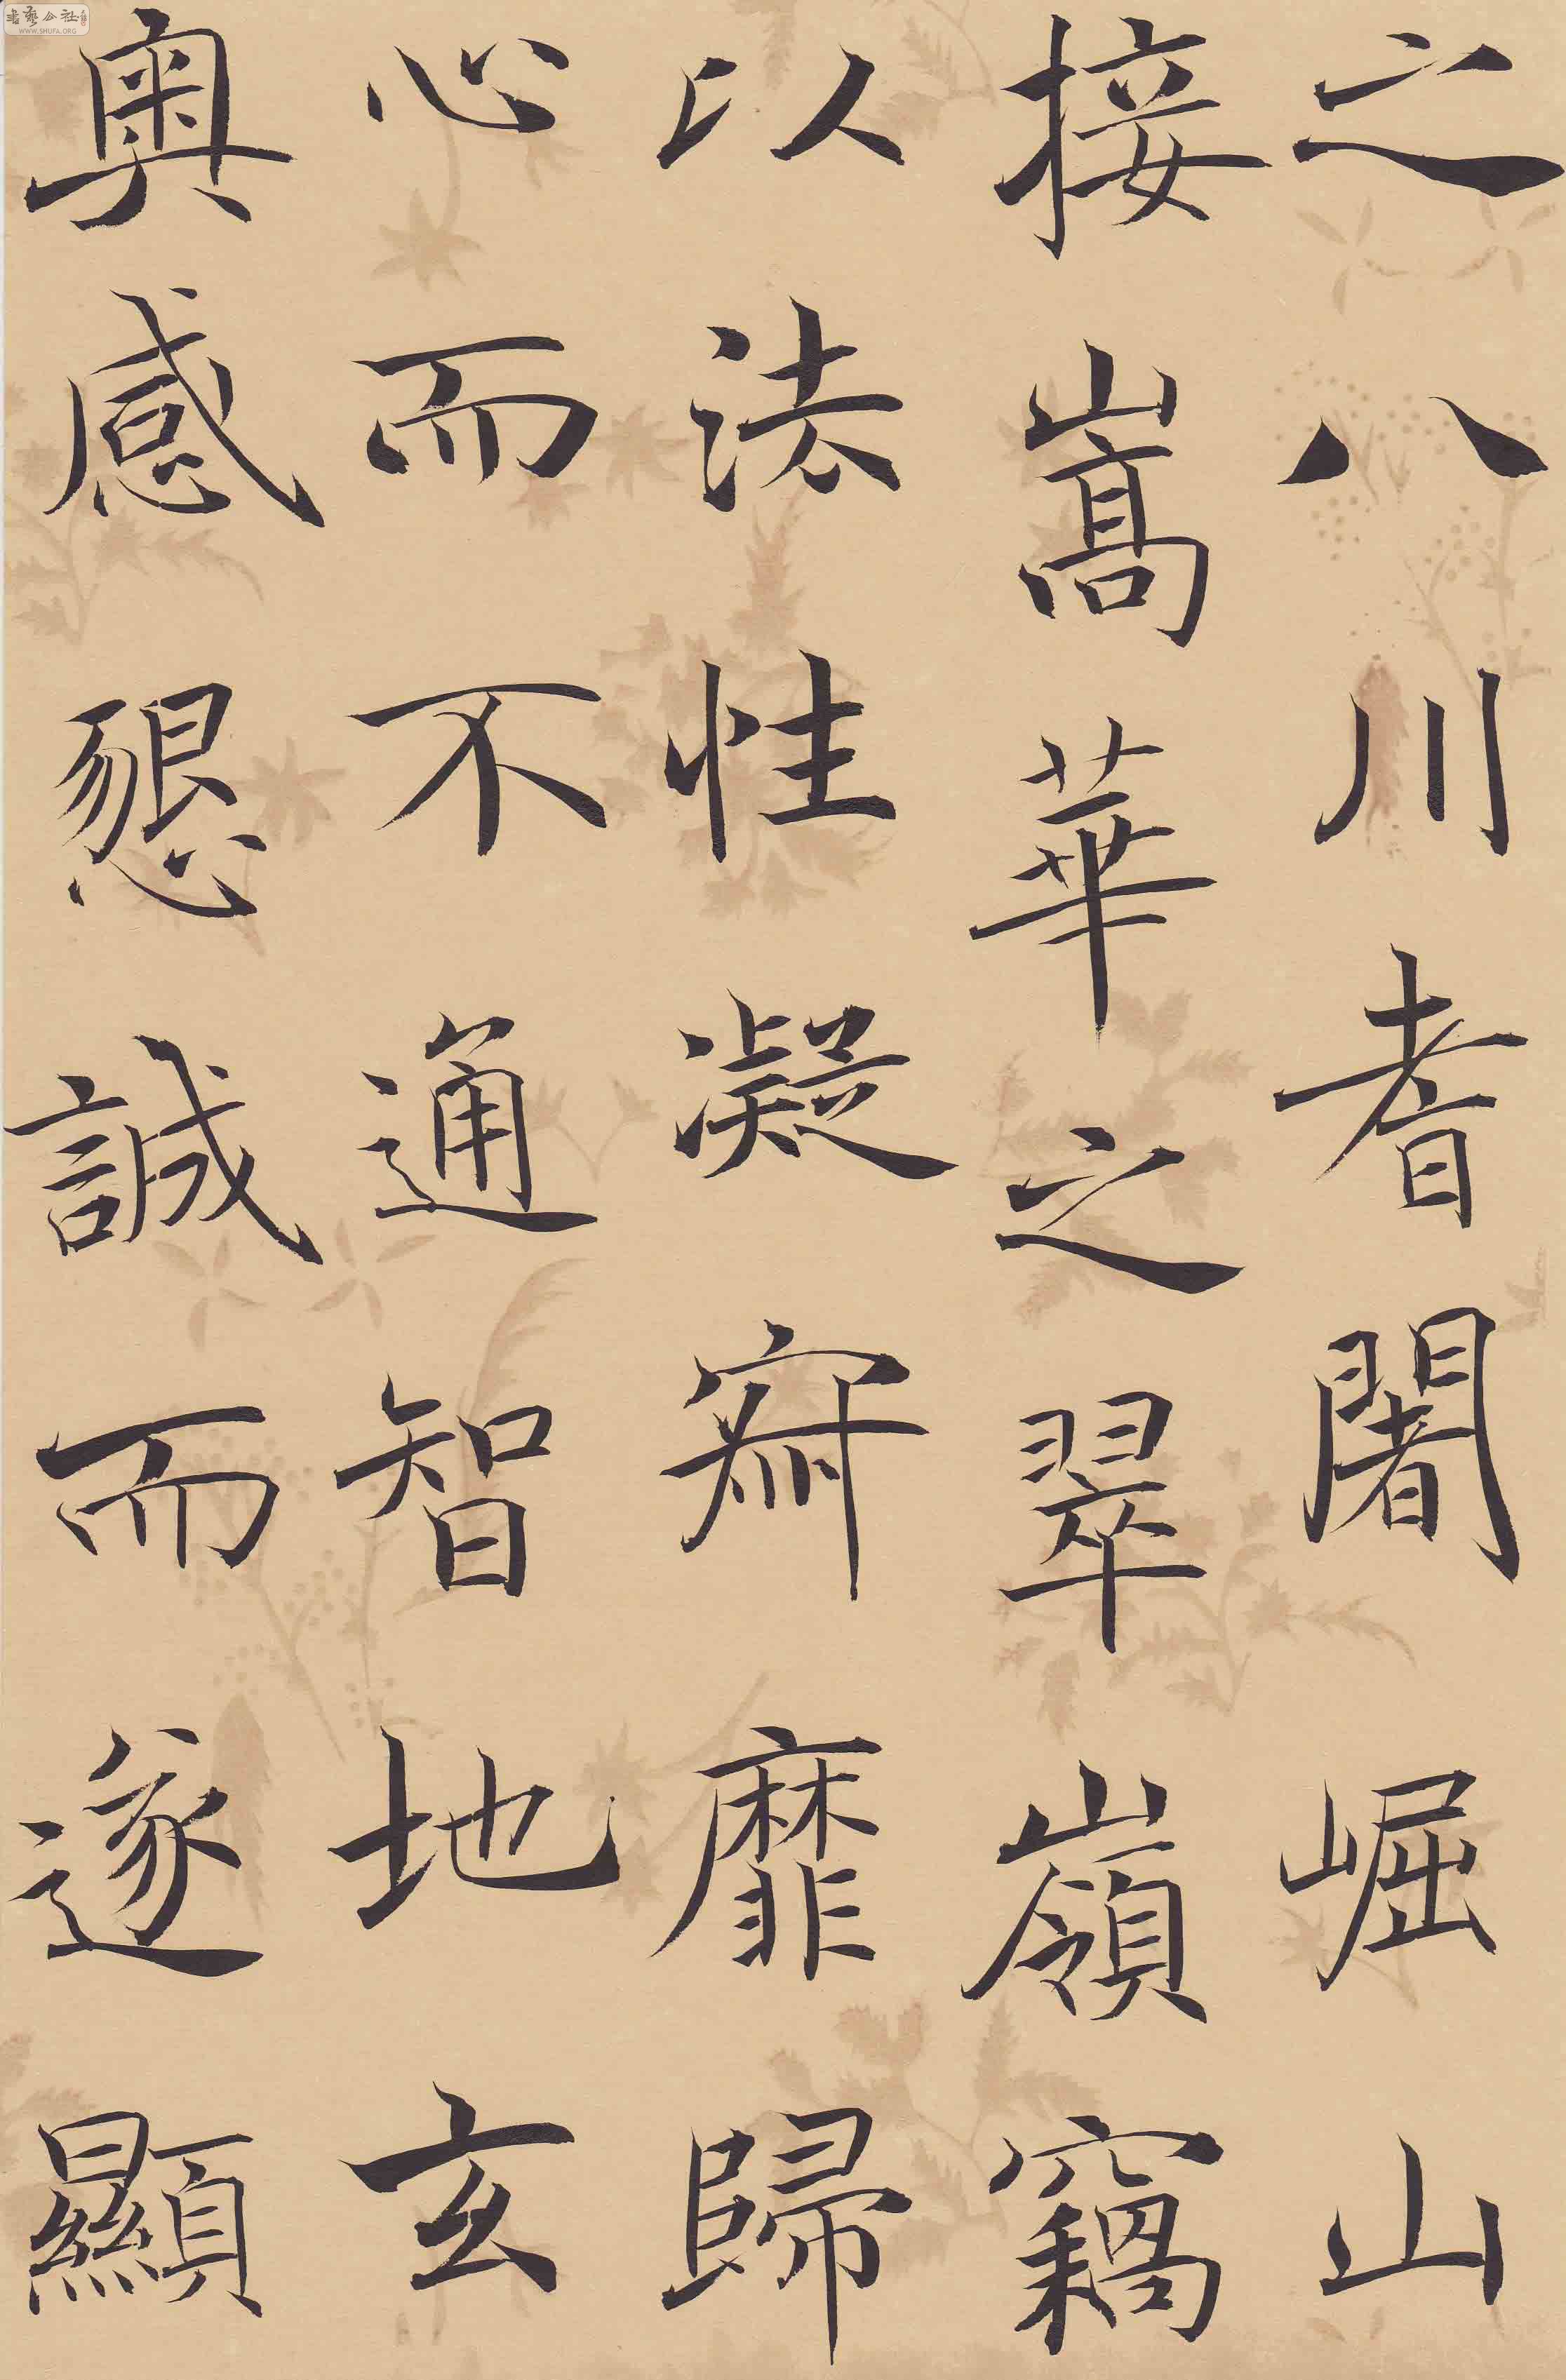 之八川耆闍崛山
接嵩華之翠嶺竊
以法性凝寂靡歸
心而不通智地玄
奧感懇誠而遂顯
書藝公社
WWW.SHUFA.ORG